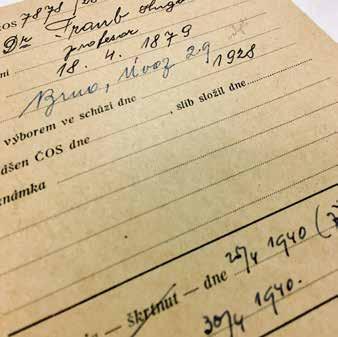 ČOS 7878/
Dr Traub Hugo
profesor
18. 4. 1879
Brno, Úvoz 29
výborem ve schůzi dne 1928
, slib složil dne
ČOS dne
známka
— škrtnut — dne 25/4 1940 (
30/4 1940.